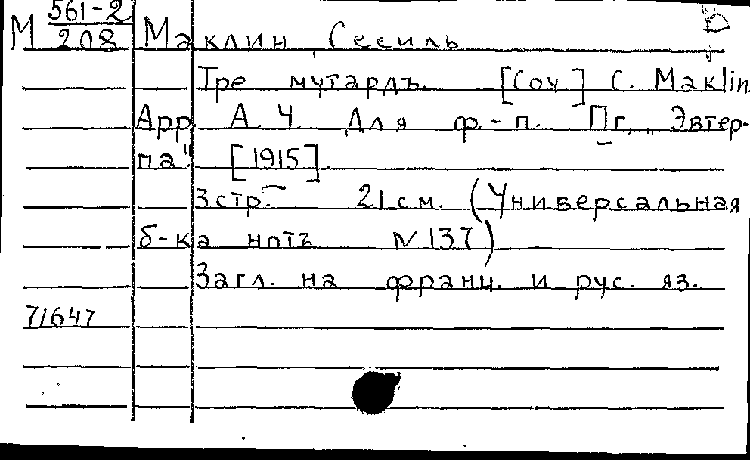 М 561-2/208 Маклин, Сесиль
Тре мутардъ. [Соч] C. Maklin
Арр. А. Ч. Для ф.-п. Пг., „Эвтер-
па" [1915].
3 стр. 21 см. (Универсальная
б-ка нотъ N 137)
Загл. на франц. и рус. яз.
71647